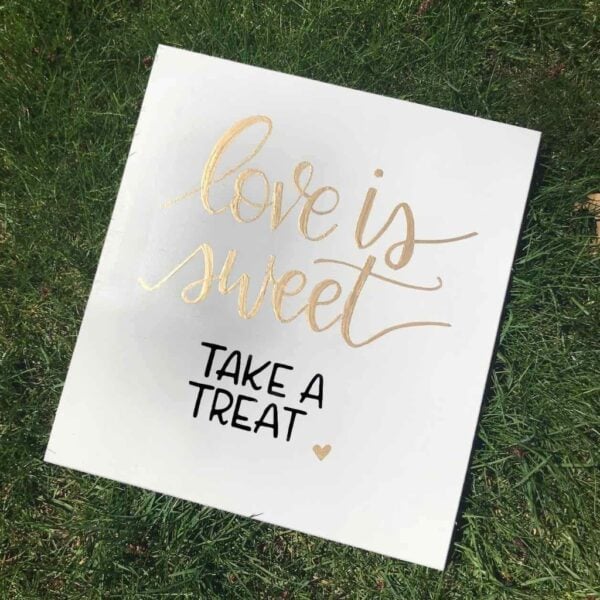 love is
sweet
TAKE A
TREAT